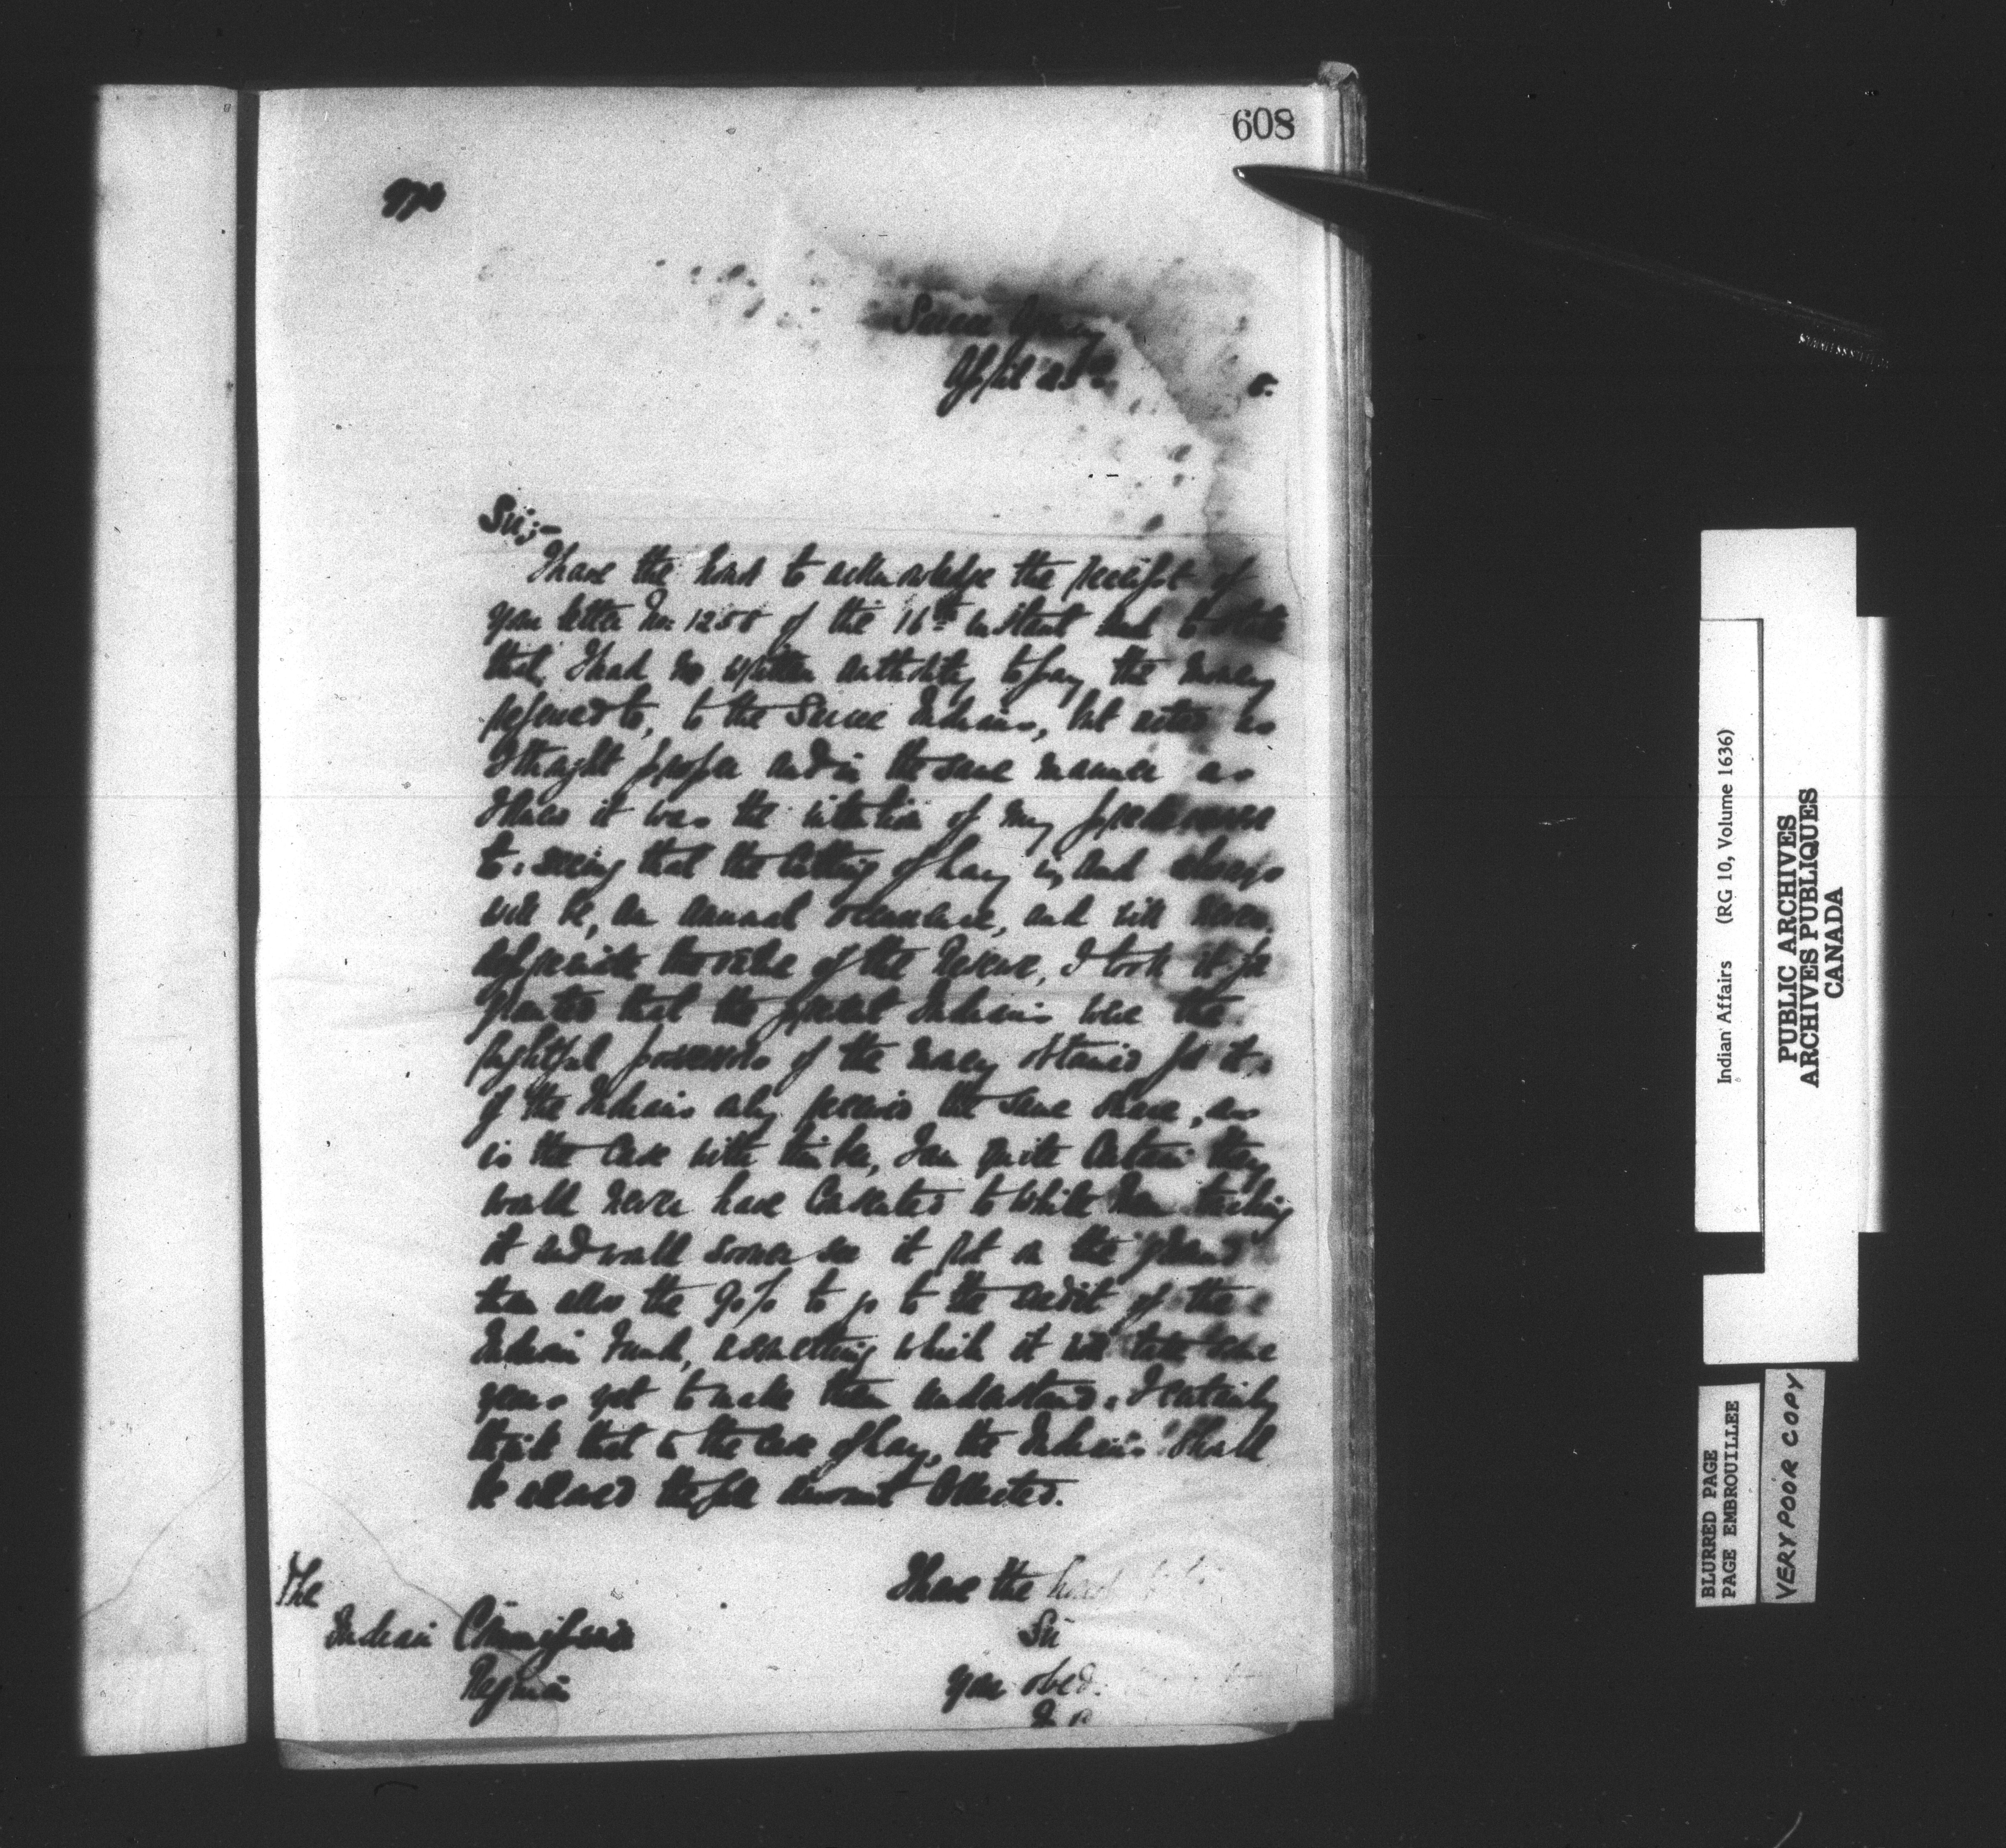 608
Sarcee Agency
April
Sir;-
I have the honor to acknowledge the receipt of
your letter No. 1258 of the 16th instant and to state
that, I had no written authority to pay the money
referred to, to the Sarcee Indians, but acted as
I thought proper and in the same manner as
I knew it was the intention of my predecessor
to. seeing that the cutting of hay is, and always
will be, an annual occurrence, and will never
depreciate the value of the Reserve, I took it for
granted that the present Indians were the
rightful possessors of the money obtained for it.
If the Indians only received the same share, as
is the case with timber, I am quite certain they
would never have consented to white men touching
it and would sooner see it rot on the ground
than allow the 90% to go to the credit of the
Indian Fund, a something which it will take some
years yet to make them understand. I certainly
think that in the case of hay, the Indians should
be allowed the full amount collected.
I have the honor
Sir
your obed.
The
Indian Commissioner
Regina
Indian Affairs (RG 10, Volume 1636)
PUBLIC ARCHIVES
ARCHIVES PUBLIQUES
CANADA
BLURRED PAGE
PAGE EMBROUILLEE
VERY POOR COPY